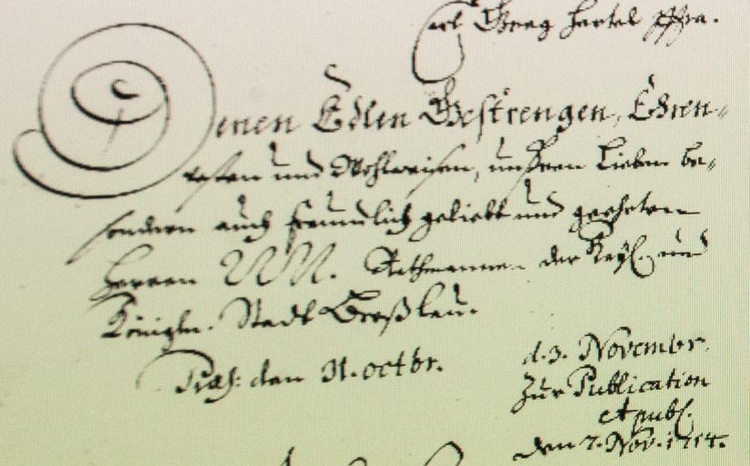 Carl Georg Hertel
Denen Edlen Gestrengen, Ehren-
vesten und Wohlweisen, unsern Lieben be-
sondern auch freundlich geliebt und geehrten
Herren NN. Rathmannen der Kayl. und
Königln. Stadt Breßlau.
Præs: den 31. octbr.
d. 3. Novembr.
Zur Publication
et publ.
den 7. Nov. 1714.